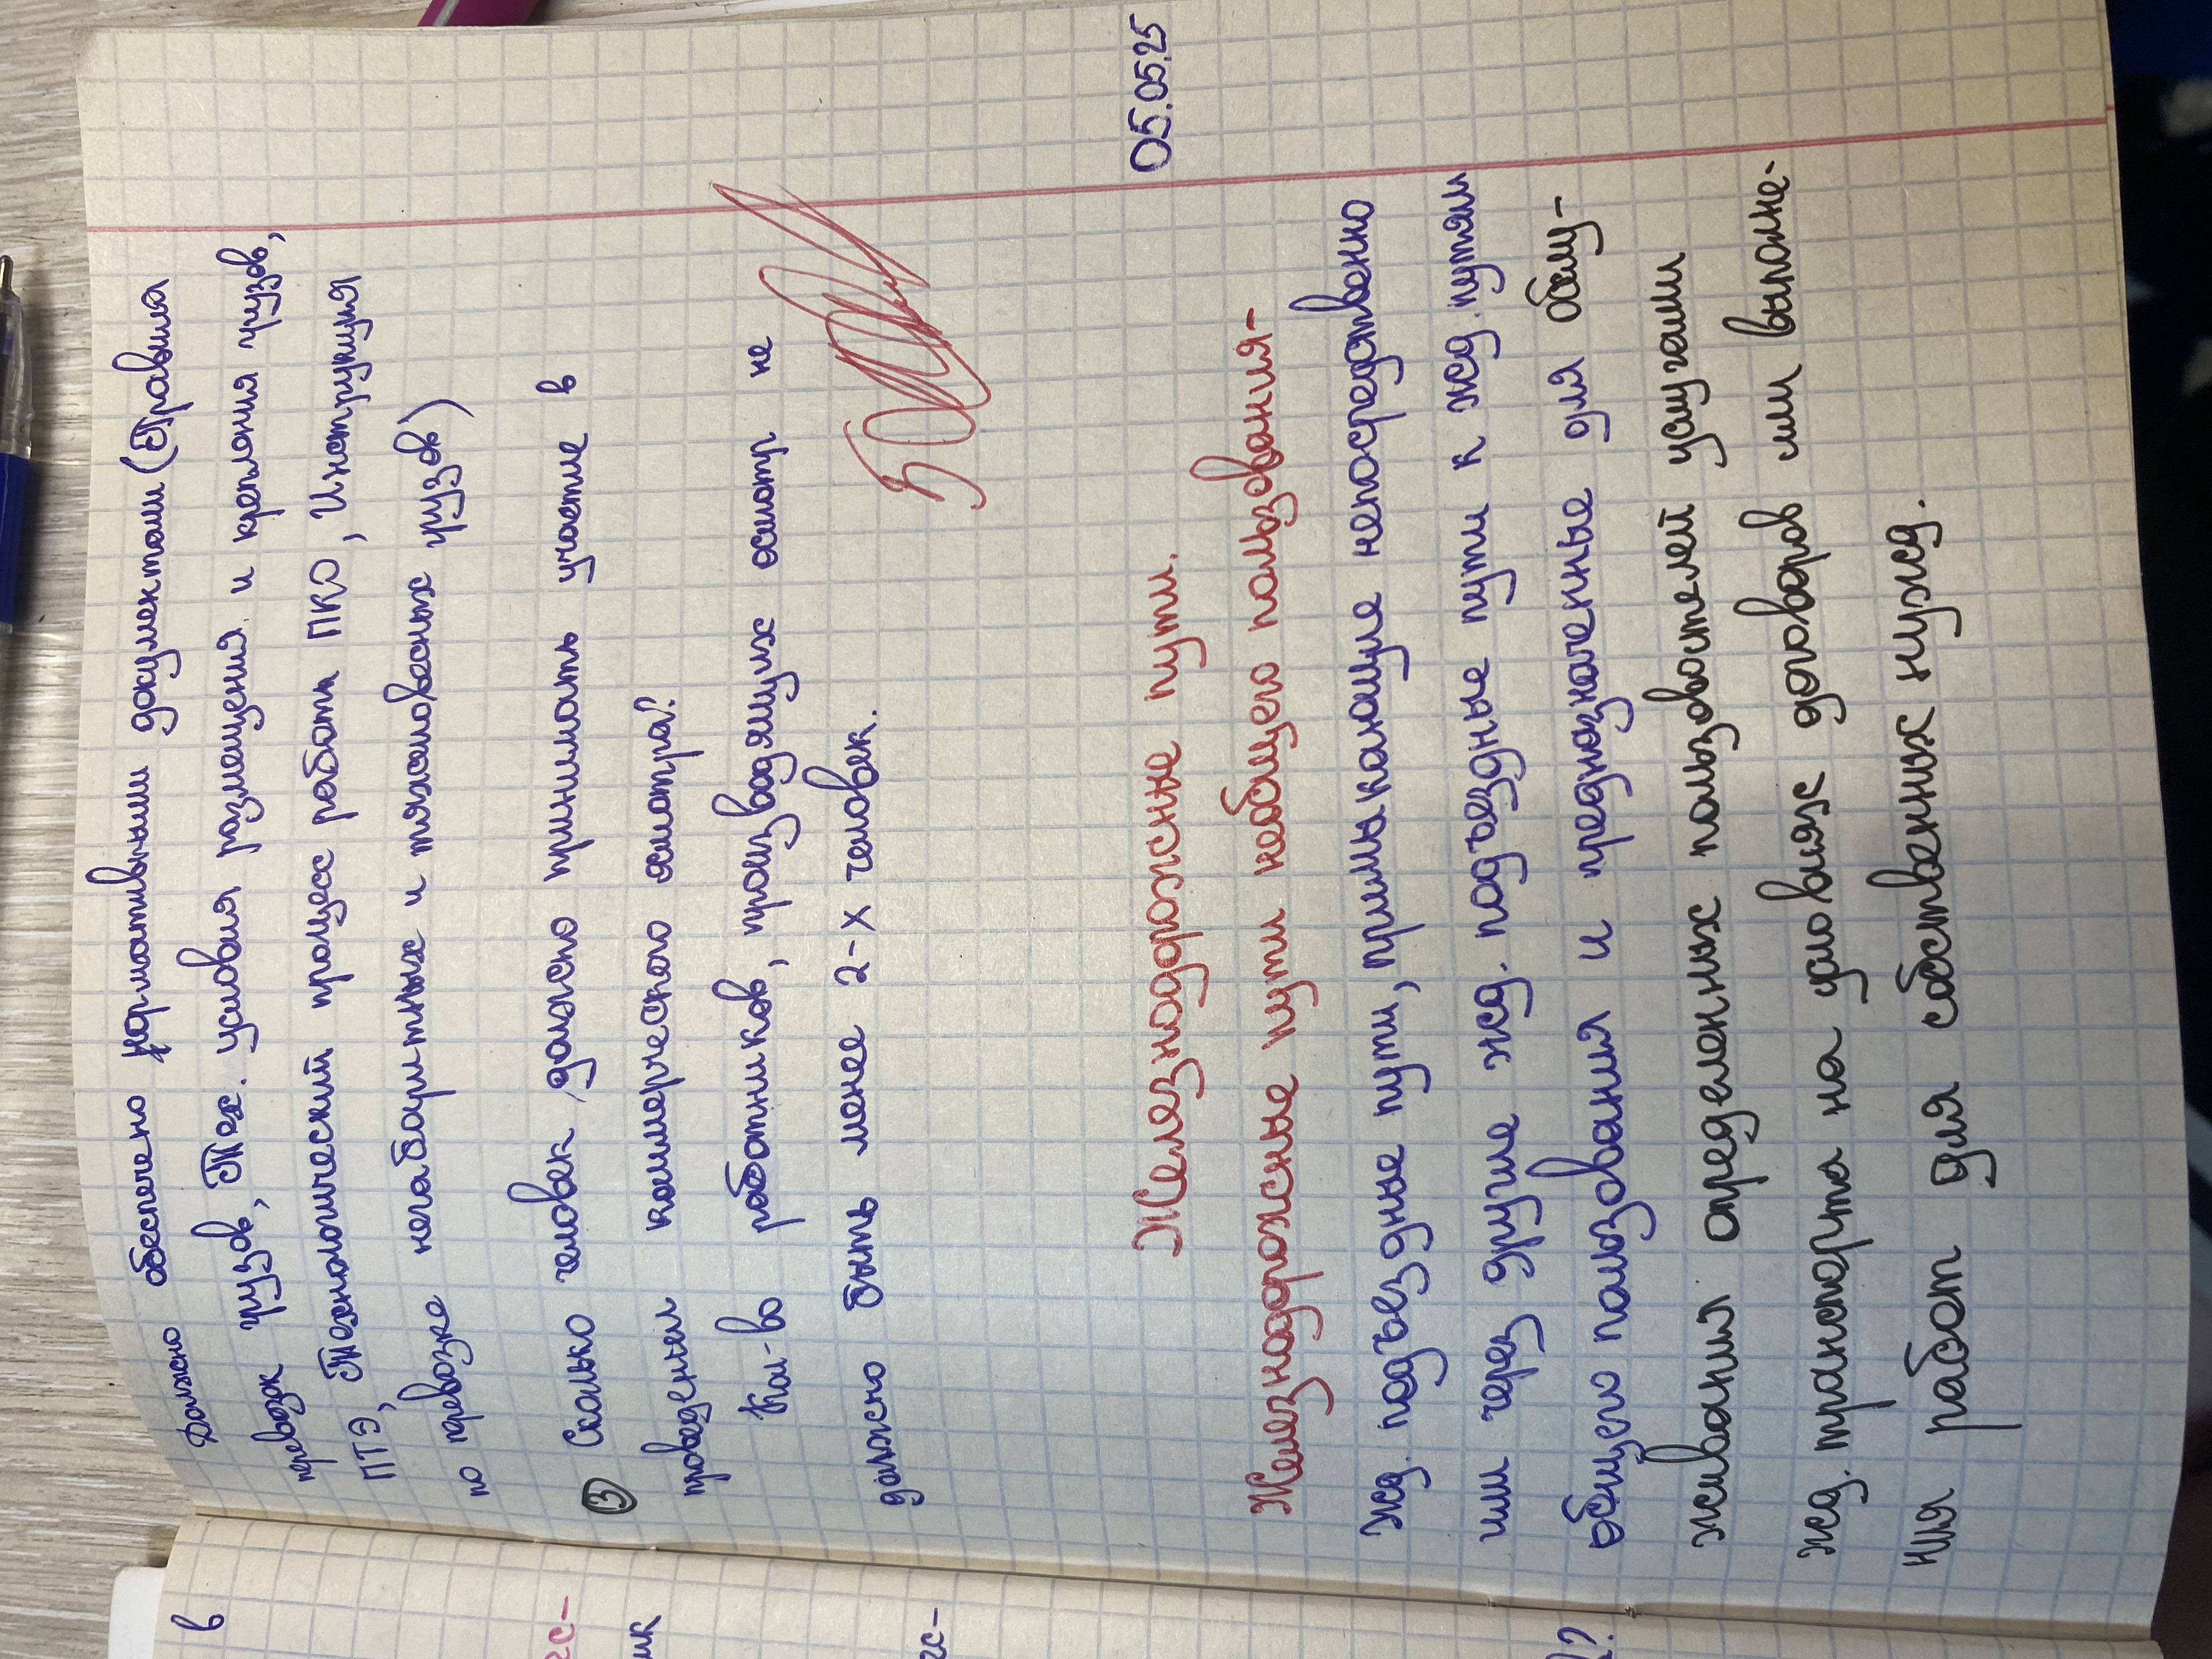 Должно обеспечено нормативными документами (Правила
перевозок грузов, Тех. условия размещения и крепления грузов,
ПТЭ, Технологический процесс работы ПКО, Инструкция
по перевозке негабаритных и тяжеловесных грузов)
③ Сколько человек должно принимать участие в
проведении коммерческого осмотра?
Кол-во работников, производящих осмотр не
должно быть менее 2-х человек.
5
05.05.25
Железнодорожные пути.
Железнодорожные пути необщего пользования-
жд. подъездные пути, примыкающие непосредственно
или через другие жд. подъездные пути к жд. путям
общего пользования и предназначенные для обслу-
живания определенных пользователей услугами
жд. транспорта на условиях договоров или выполне-
ния работ для собственных нужд.
в
гс-
ик
гс-
?